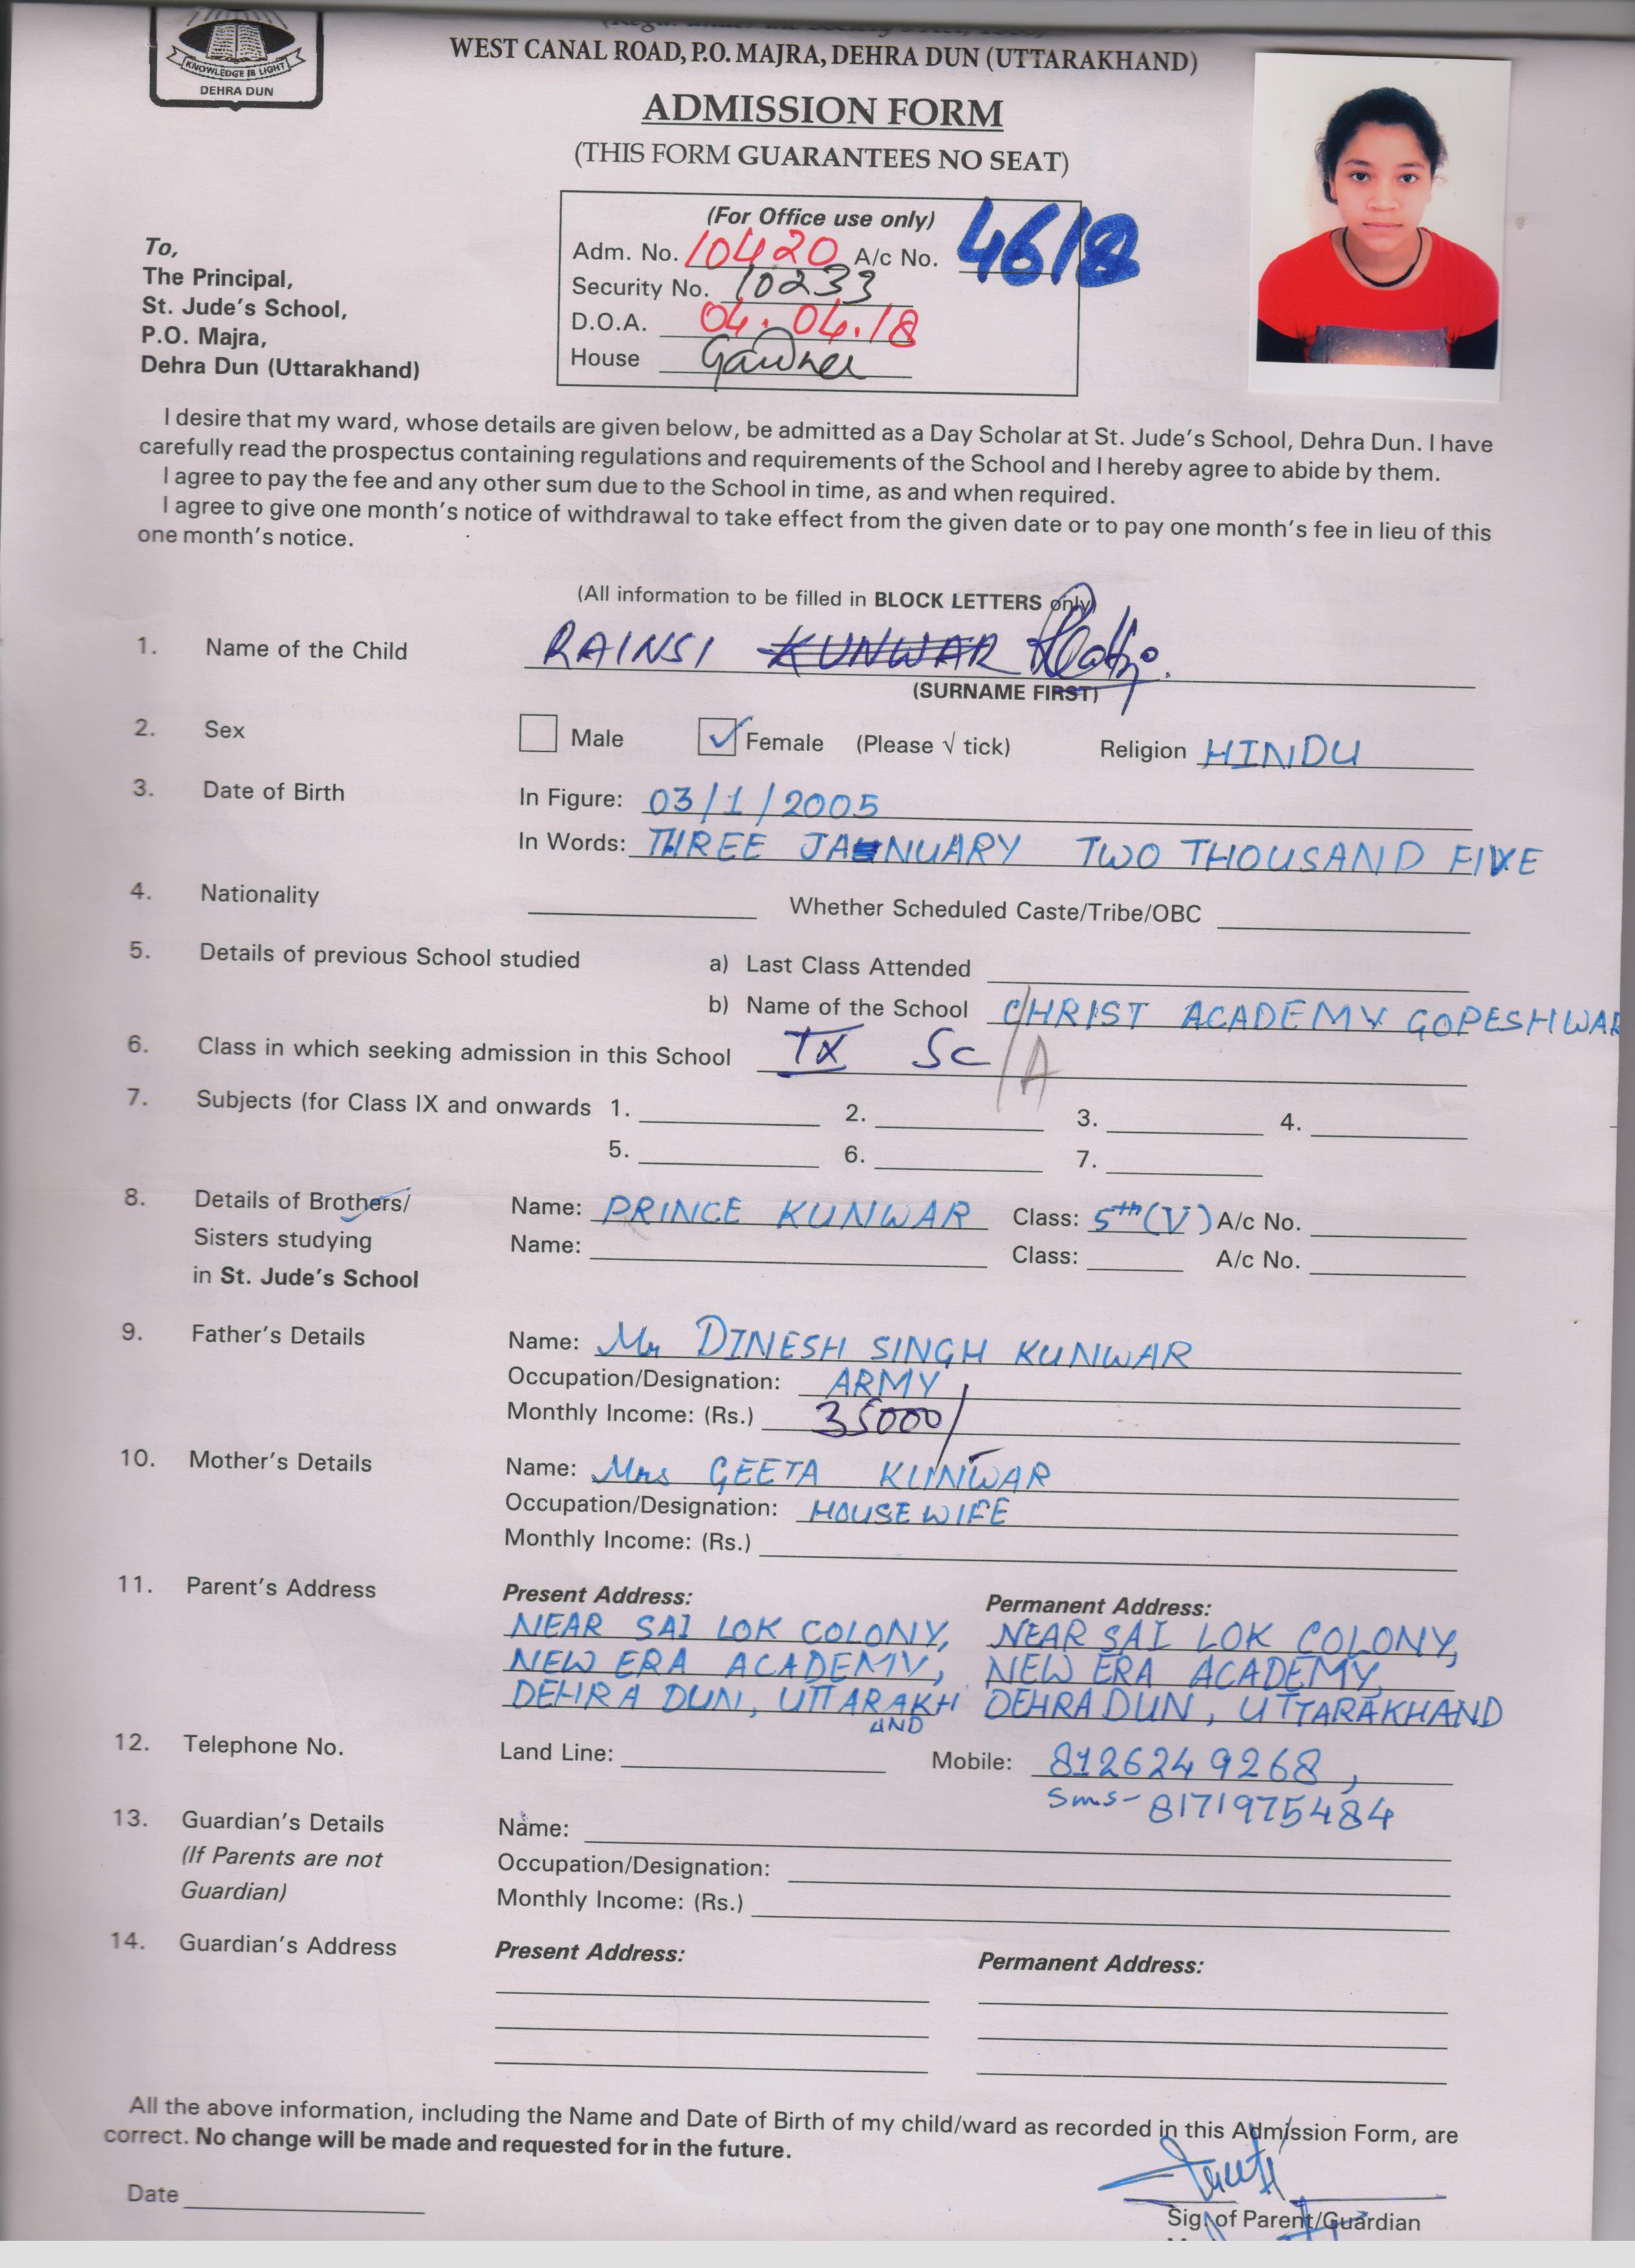 KNOWLEDGE IS LIGHT
DEHRA DUN
WEST CANAL ROAD, P.O. MAJRA, DEHRA DUN (UTTARAKHAND)
ADMISSION FORM
(THIS FORM GUARANTEES NO SEAT)
To,
The Principal,
St. Jude's School,
P.O. Majra,
Dehra Dun (Uttarakhand)
(For Office use only)
Adm. No. 10420 A/c No. 4618
Security No. 10233
D.O.A. 04.04.18
House
I desire that my ward, whose details are given below, be admitted as a Day Scholar at St. Jude's School, Dehra Dun. I have
carefully read the prospectus containing regulations and requirements of the School and I hereby agree to abide by them.
I agree to pay the fee and any other sum due to the School in time, as and when required.
I agree to give one month's notice of withdrawal to take effect from the given date or to pay one month's fee in lieu of this
one month's notice.
(All information to be filled in BLOCK LETTERS only)
1. Name of the Child RAINSI KUNWAR
(SURNAME FIRST)
2. Sex Male Female (Please √ tick) Religion HINDU
3. Date of Birth In Figure: 03/1/2005
In Words: THREE JANUARY TWO THOUSAND FIVE
4. Nationality Whether Scheduled Caste/Tribe/OBC
5. Details of previous School studied a) Last Class Attended
b) Name of the School CHRIST ACADEMY GOPESHWAR
6. Class in which seeking admission in this School IX Sc /A
7. Subjects (for Class IX and onwards 1. 2. 3. 4.
5. 6. 7.
8. Details of Brothers/ Name: PRINCE KUNWAR Class: 5th (V) A/c No.
Sisters studying Name: Class: A/c No.
in St. Jude's School
9. Father's Details Name: Mr DINESH SINGH KUNWAR
Occupation/Designation: ARMY
Monthly Income: (Rs.) 35000/
10. Mother's Details Name: Mrs GEETA KUNWAR
Occupation/Designation: HOUSE WIFE
Monthly Income: (Rs.)
11. Parent's Address Present Address: Permanent Address:
NEAR SAI LOK COLONY, NEAR SAI LOK COLONY,
NEW ERA ACADEMY, NEW ERA ACADEMY,
DEHRA DUN, UTTARAKH DEHRADUN, UTTARAKHAND
AND
12. Telephone No. Land Line: Mobile: 8126249268,
Sms- 8171975484
13. Guardian's Details Name:
(If Parents are not Occupation/Designation:
Guardian) Monthly Income: (Rs.)
14. Guardian's Address Present Address: Permanent Address:
All the above information, including the Name and Date of Birth of my child/ward as recorded in this Admission Form, are
correct. No change will be made and requested for in the future.
Date
Sig. of Parent/Guardian